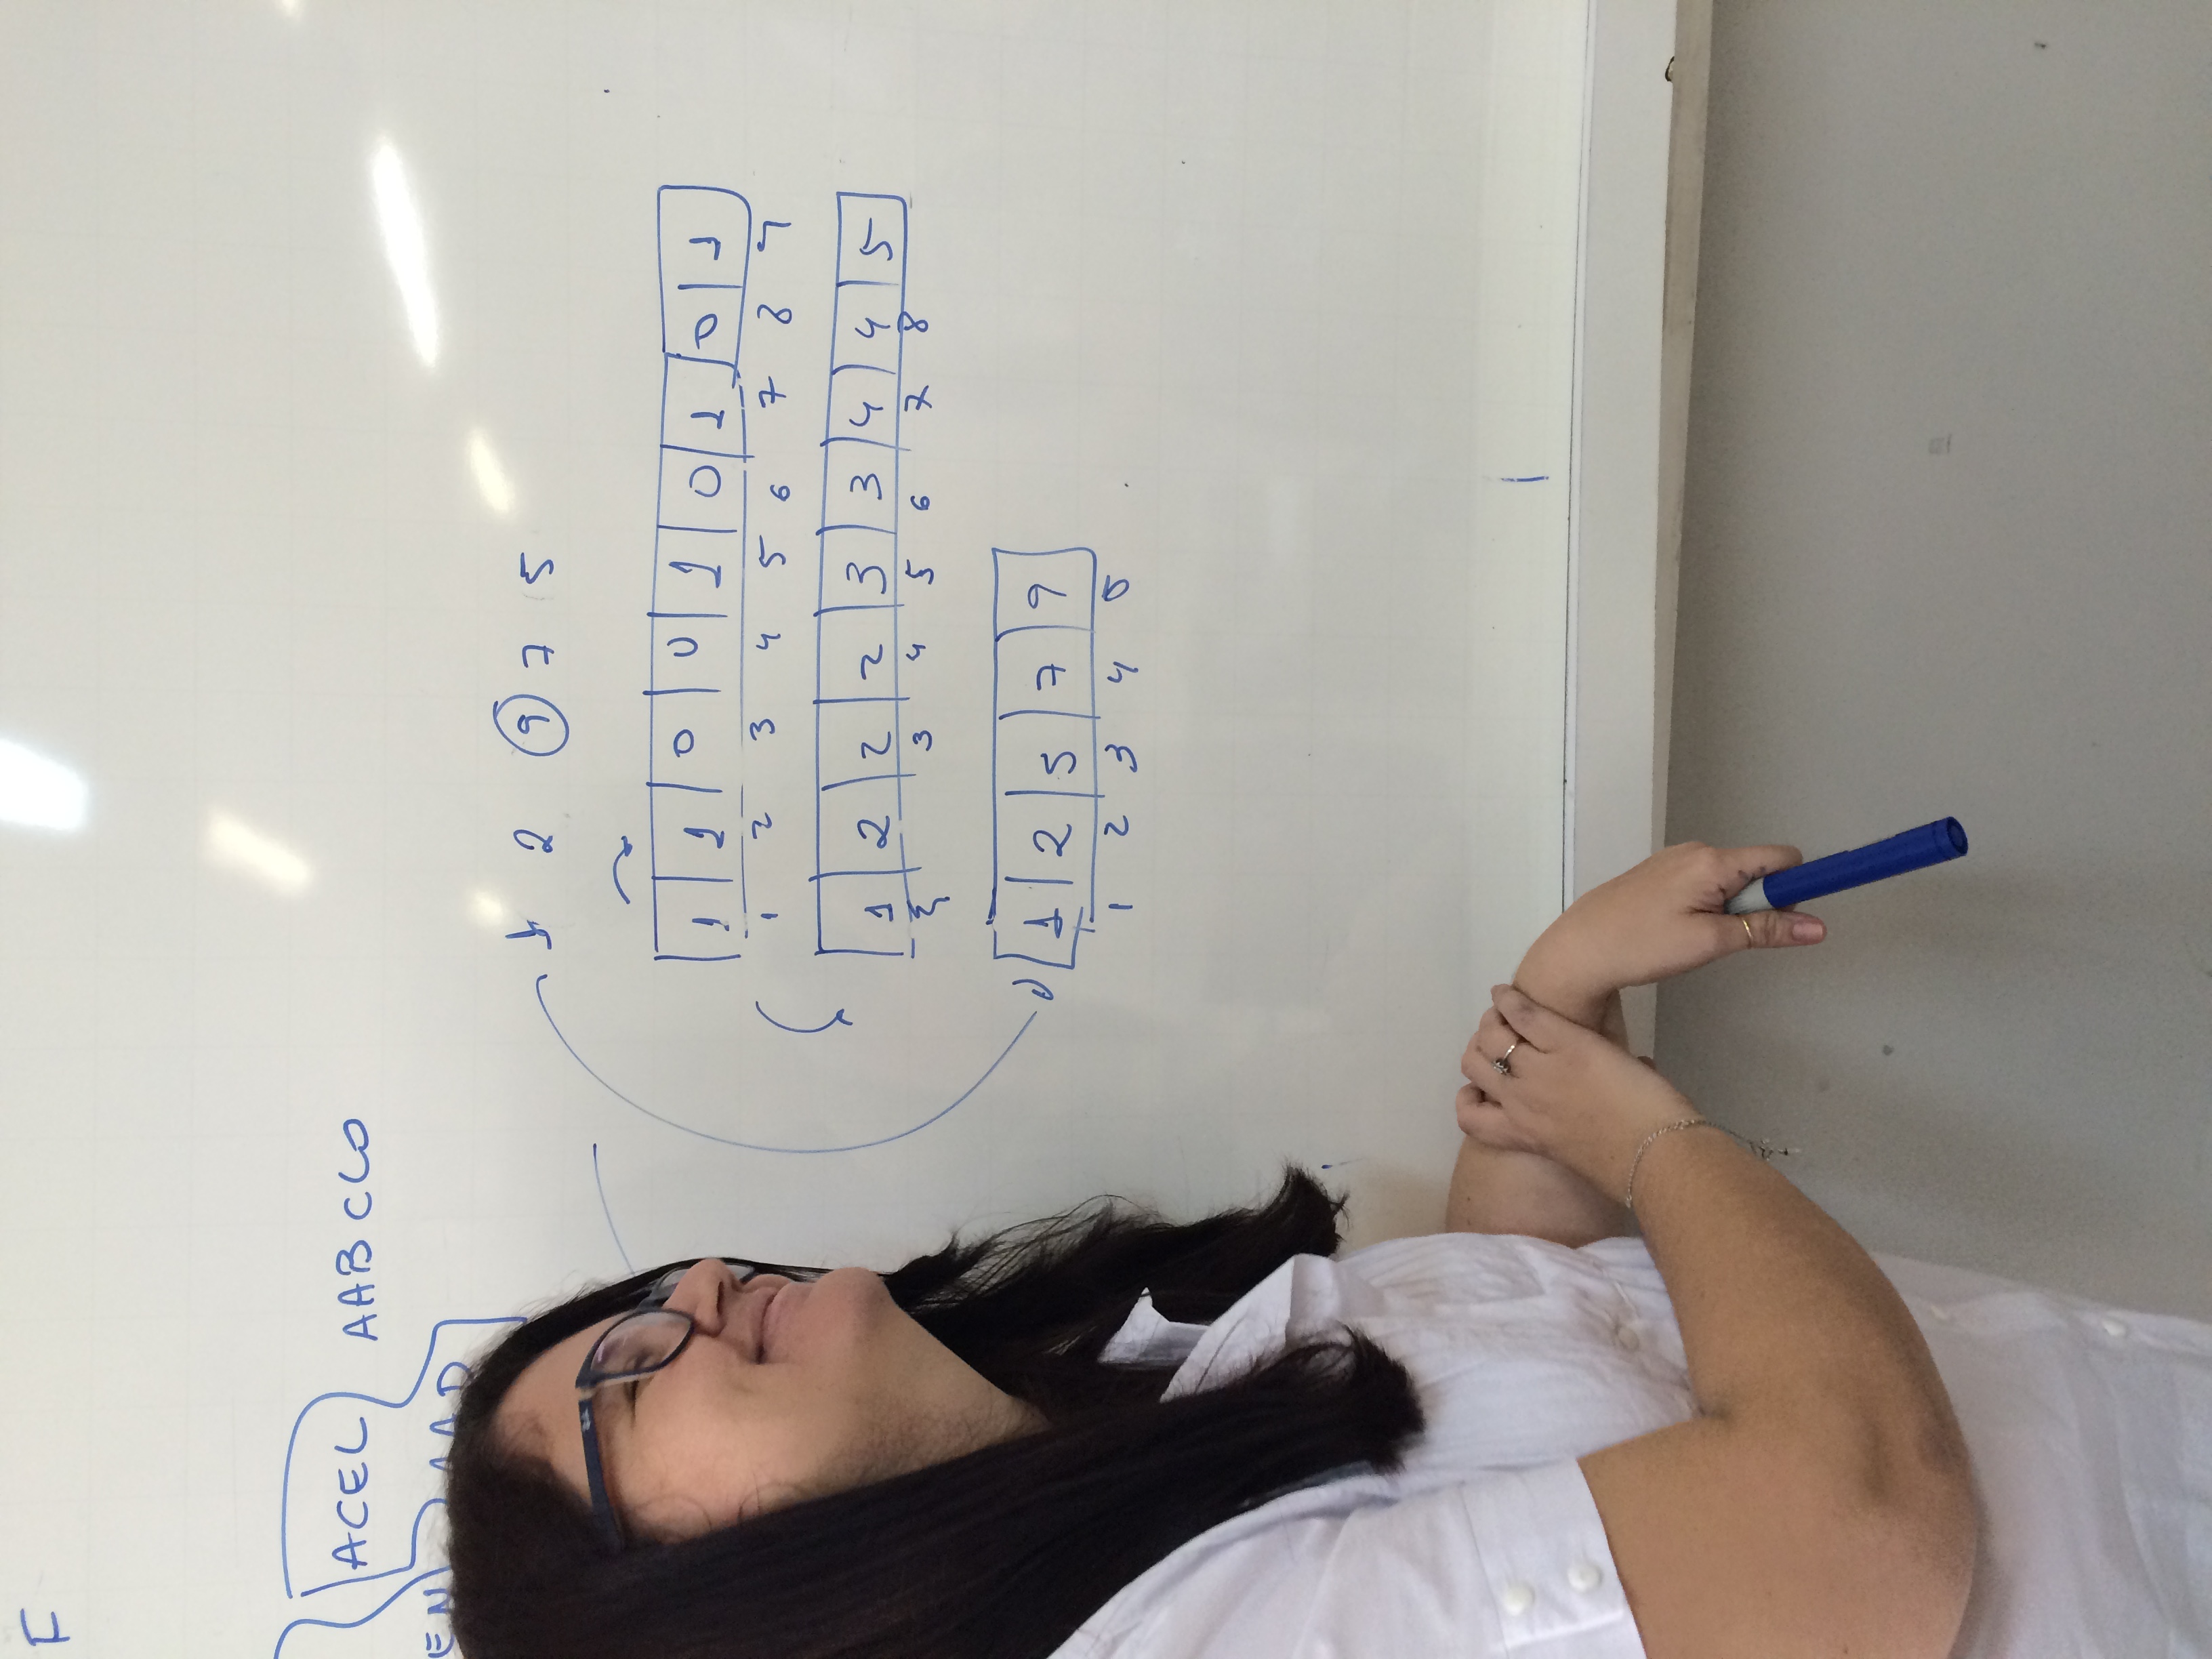 F
ACEL AABCLO
EN AAD
1 2 9 7 5
1 1 0 0 1 0 1 0 1
1 2 3 4 5 6 7 8 9
1 2 2 2 3 3 4 4 5
3 4 5 6 7 8
1 2 5 7 9
1 2 3 4 5